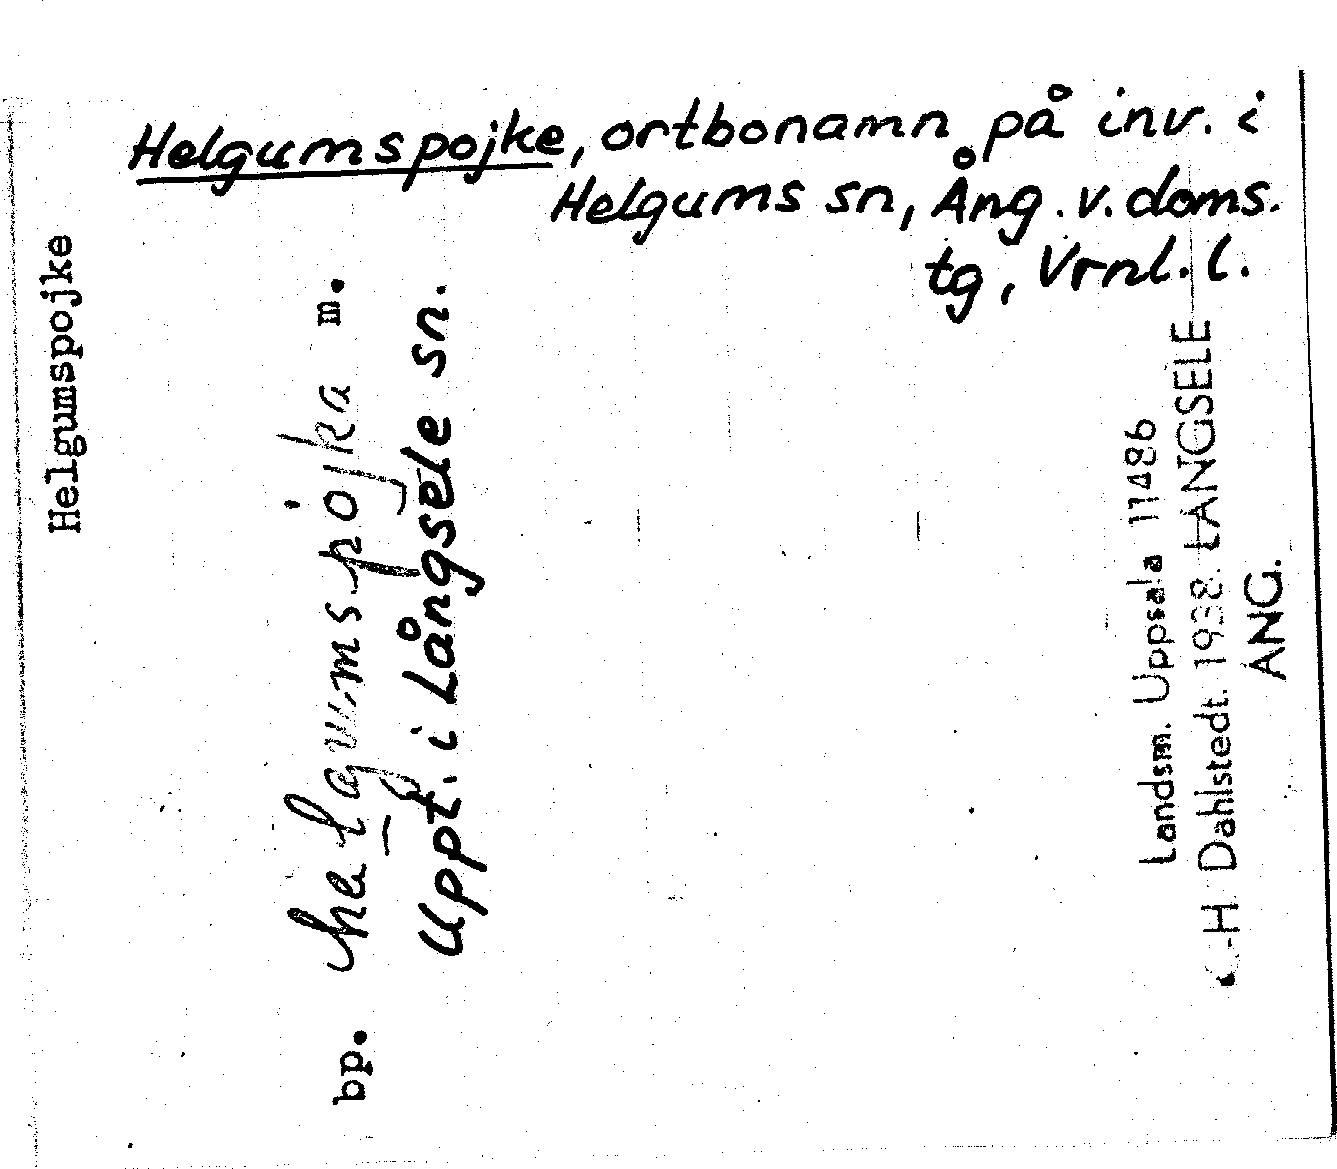 Helgumspojke, ortbonamn på inv. i
Helgums sn, Ång. v. doms.
tg, Vrnl. l.
Helgumspojke
bp. m.
Uppt. i Långsele sn.
Landsm. Uppsala 11486
C-H Dahlstedt. 1938. LÅNGSELE
ÅNG.